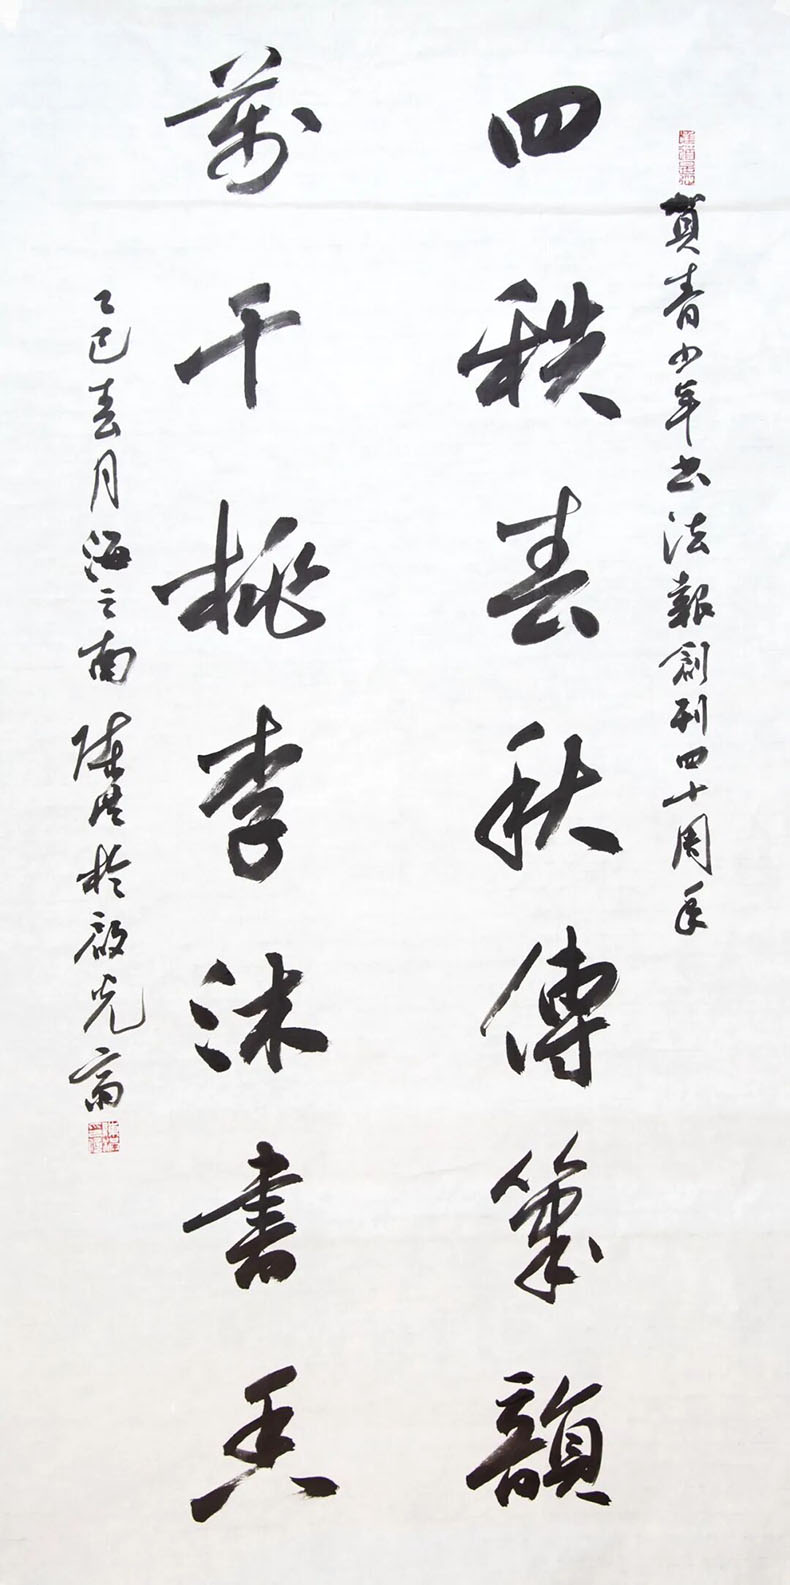 賀青少年书法報創刊四十周年
四秩春秋傳筆韻
萬千桃李沐書香
乙巳春月海之南陈浩於啟光斋